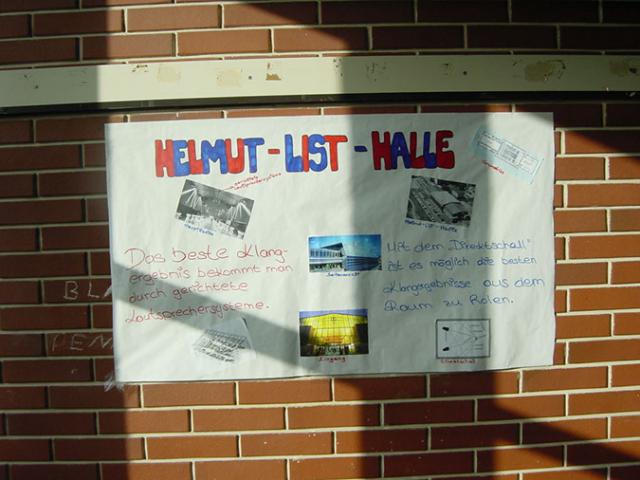 HELMUT-LIST-HALLE
Das beste Klang-
ergebnis bekommt man
durch gerichtete
Lautsprechersysteme.
Mit dem "Direktschall"
ist es möglich die besten
Klangergebnisse aus dem
Raum zu holen.
Helmut-List-Halle
Seitenansicht
Eingang